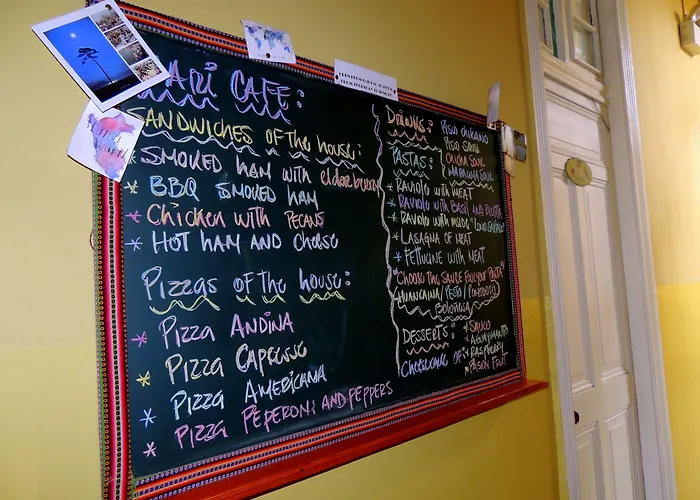 WARI CAFE:
SANDWICHES OF THE HOUSE:
SMOKED HAM WITH elderberry
* BBQ SMOKED HAM
* Chicken with PECANS
* HOT HAM AND cheese
Pizzas of the house:
* Pizza ANDINA
* Pizza Capresse
* Pizza AMERICANA
* Pizza PEPERONI AND PEPPERS
Drinks:
PISCO CHILCANO
PISCO SOUR
CHICHA SOUR
MARACUYA SOUR
PASTAS:
* RAVIOLIS WITH MEAT
* RAVIOLIS WITH BASIL AND RICOTTA
* RAVIOLIS WITH INSIDE
* LASAGNA OF MEAT
* FETUCCINE WITH MEAT
"CHOOSE THE SAUCE FOR YOUR PASTA"
HUANCAINA/PESTO/POMODORO
BOLONESA
DESSERTS:
CheeseCAKE OF:
* SAUCO
* AGUAYMANTO
* RASPBERRY
* PASSION FRUIT